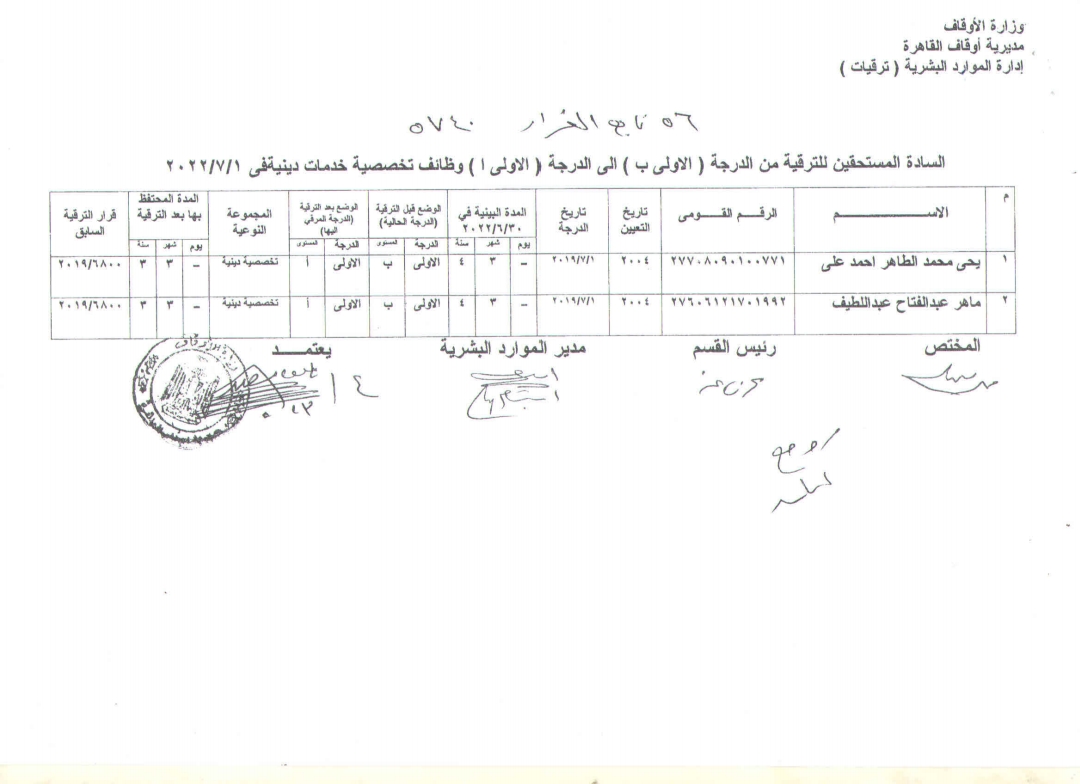 وزارة الأوقاف
مديرية أوقاف القاهرة
إدارة الموارد البشرية ( ترقيات )
٥٦ تابع القرار ٥٧٤٠
السادة المستحقين للترقية من الدرجة ( الاولى ب ) الى الدرجة ( الاولى ا ) وظائف تخصصية خدمات دينيةفى ٢٠٢٢/٧/١
م الاســـــــــم الرقـــم القـــــومى تاريخ التعيين تاريخ الدرجة المدة البينية في ٢٠٢٢/٦/٣٠ الوضع قبل الترقية (الدرجة الحالية) الوضع بعد الترقية (الدرجة المرقي اليها) المجموعة النوعية المدة المحتفظ بها بعد الترقية قرار الترقية السابق
يوم شهر سنة الدرجة المستوى الدرجة المستوى يوم شهر سنة
١ يحى محمد الطاهر احمد على ٢٧٧٠٨٠٩٠١٠٠٧٧١ ٢٠٠٤ ٢٠١٩/٧/١ – ٣ ٤ الاولى ب الاولى أ تخصصية دينية – ٣ ٣ ٢٠١٩/٦٨٠٠
٢ ماهر عبدالفتاح عبداللطيف ٢٧٦٠٦١٢١٧٠١٩٩٢ ٢٠٠٤ ٢٠١٩/٧/١ – ٣ ٤ الاولى ب الاولى أ تخصصية دينية – ٣ ٣ ٢٠١٩/٦٨٠٠
المختص رئيس القسم مدير الموارد البشرية يعتمـــد